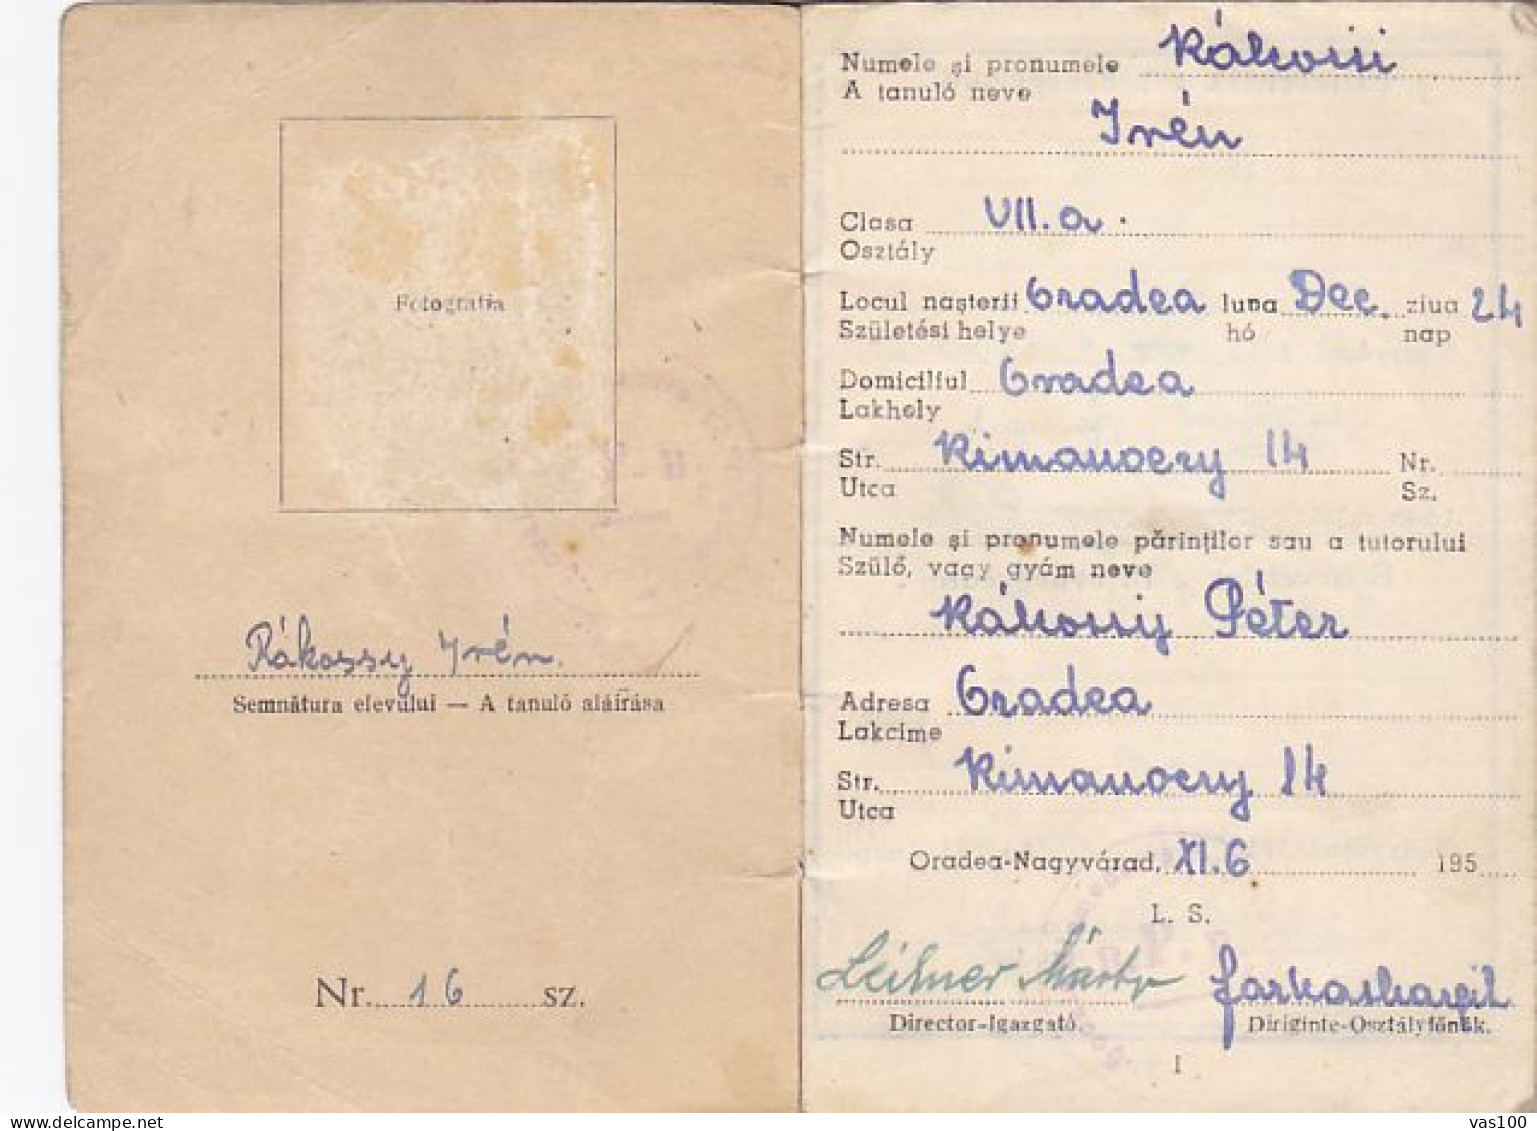 Fotografia
Rákossy Irén.
Semnătura elevului — A tanuló aláírása
Nr. 16 sz.
Numele și pronumele Rákossi
A tanuló neve
Irén
Clasa VII. a.
Osztály
Locul nașterii Oradea luna Dec. ziua 24
Születési helye hó nap
Domiciliul Oradea
Lakhely
Str. Rimanoczy 14 Nr.
Utca Sz.
Numele și pronumele părinților sau a tutorului
Szülő, vagy gyám neve
Rákossy Péter
Adresa Oradea
Lakcime
Str. Rimanoczy 14
Utca
Oradea-Nagyvárad, XI. 6 195
L. S.
Leitner
Director-Igazgató. Diriginte-Osztályfőnök.
1
vas100